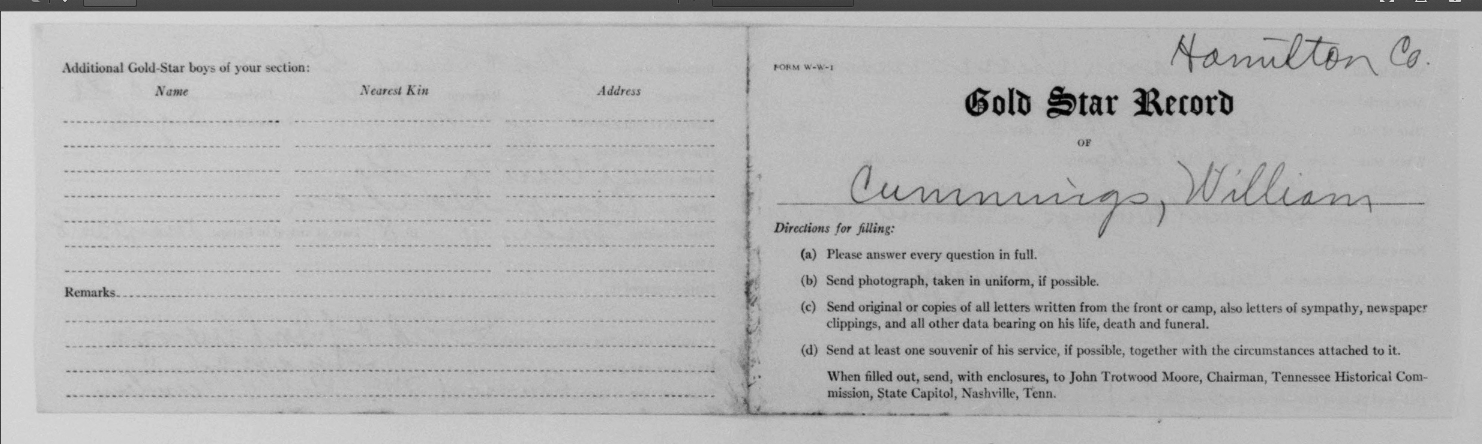 Additional Gold-Star boys of your section:
Name Nearest Kin Address
Remarks
Hamilton Co.
FORM W-W-1
Gold Star Record
OF
Cummings, William
Directions for filling:
(a) Please answer every question in full.
(b) Send photograph, taken in uniform, if possible.
(c) Send original or copies of all letters written from the front or camp, also letters of sympathy, newspaper
clippings, and all other data bearing on his life, death and funeral.
(d) Send at least one souvenir of his service, if possible, together with the circumstances attached to it.
When filled out, send, with enclosures, to John Trotwood Moore, Chairman, Tennessee Historical Com-
mission, State Capitol, Nashville, Tenn.